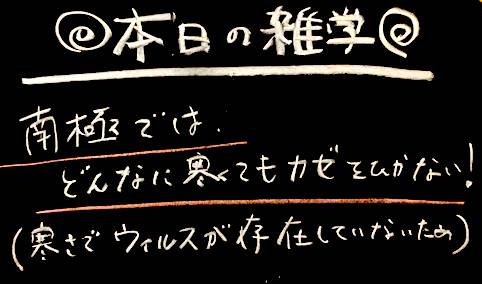 本日の雑学
南極では、
どんなに寒くてもカゼをひかない!
(寒さでウィルスが存在していないため)